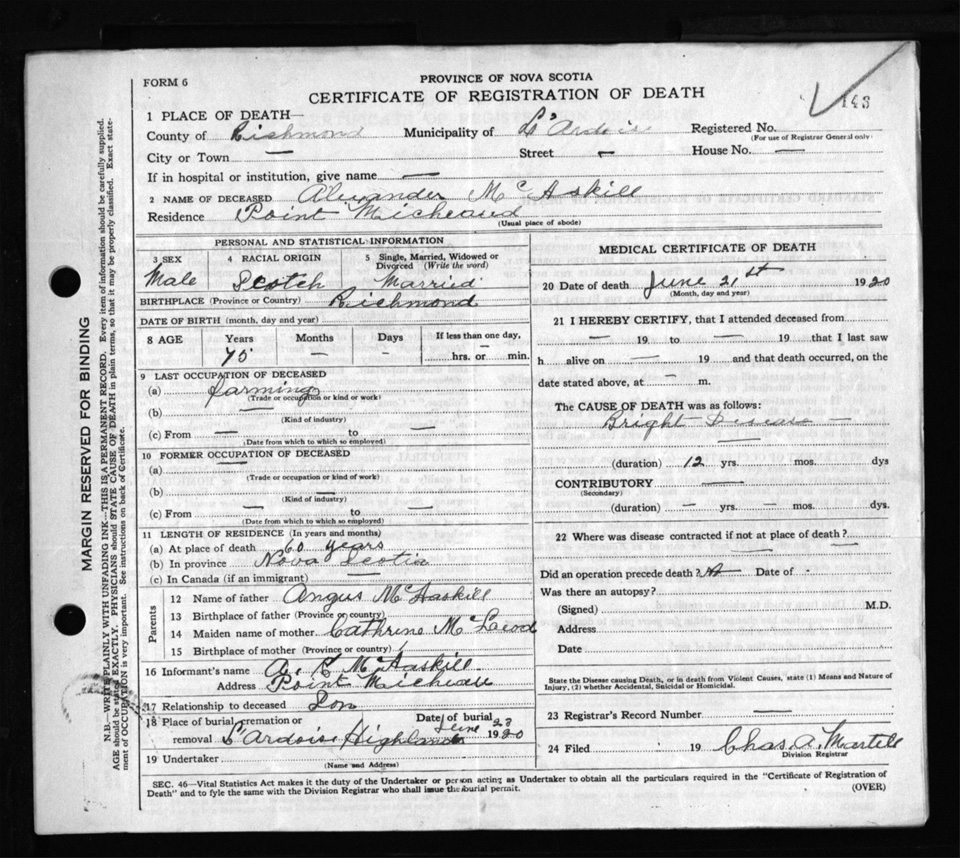 143
FORM 6
PROVINCE OF NOVA SCOTIA
CERTIFICATE OF REGISTRATION OF DEATH
1 PLACE OF DEATH—
County of Richmond Municipality of L'Ardoise Registered No.
(For use of Registrar General only)
City or Town — Street — House No. —
If in hospital or institution, give name —
2 NAME OF DECEASED Alexander McAskill
Residence Point Micheaud
(Usual place of abode)
PERSONAL AND STATISTICAL INFORMATION
3 SEX 4 RACIAL ORIGIN 5 Single, Married, Widowed or Divorced (Write the word)
Male Scotch Married
BIRTHPLACE (Province or Country) Richmond
DATE OF BIRTH (month, day and year)
8 AGE Years Months Days If less than one day,
75 — — hrs. or min.
9 LAST OCCUPATION OF DECEASED
(a) farming
(Trade or occupation or kind or work)
(b) —
(Kind of industry)
(c) From — to —
(Date from which to which so employed)
10 FORMER OCCUPATION OF DECEASED
(a) —
(Trade or occupation or kind of work)
(b) —
(Kind of industry)
(c) From — to —
(Date from which to which so employed)
11 LENGTH OF RESIDENCE (In years and months)
(a) At place of death 60 years
(b) In province Nova Scotia
(c) In Canada (if an immigrant) —
Parents
12 Name of father Angus McAskill
13 Birthplace of father (Province or country)
14 Maiden name of mother Cathrine McLeod
15 Birthplace of mother (Province or country)
16 Informant's name A. McAskill
Address Point Micheau
17 Relationship to deceased Son
18 Place of burial, cremation or removal L'Ardoise Highlands Date of burial June 23 1920
19 Undertaker
(Name and Address)
MEDICAL CERTIFICATE OF DEATH
20 Date of death June 21st 1920
(Month, day and year)
21 I HEREBY CERTIFY, that I attended deceased from
— 19 to — 19 that I last saw
h alive on — 19 and that death occurred, on the
date stated above, at — m.
The CAUSE OF DEATH was as follows:
Bright Disease —
—
(duration) 12 yrs. mos. dys
CONTRIBUTORY —
(Secondary)
(duration) — yrs. — mos. ds.
22 Where was disease contracted if not at place of death?
— —
Did an operation precede death? Date of
Was there an autopsy?
(Signed) M.D.
Address
Date
State the Disease causing Death, or in death from Violent Causes, state (1) Means and Nature of
Injury, (2) whether Accidental, Suicidal or Homicidal.
23 Registrar's Record Number —
24 Filed 19 Chas. A. Martell
Division Registrar
SEC. 46—Vital Statistics Act makes it the duty of the Undertaker or person acting as Undertaker to obtain all the particulars required in the "Certificate of Registration of
Death" and to fyle the same with the Division Registrar who shall issue the burial permit. (OVER)
MARGIN RESERVED FOR BINDING
N.B.—WRITE PLAINLY WITH UNFADING INK—THIS IS A PERMANENT RECORD. Every item of information should be carefully supplied.
AGE should be stated EXACTLY. PHYSICIANS should STATE CAUSE OF DEATH in plain terms, so that it may be properly classified. Exact state-
ment of OCCUPATION is very important. See instructions on back of Certificate.